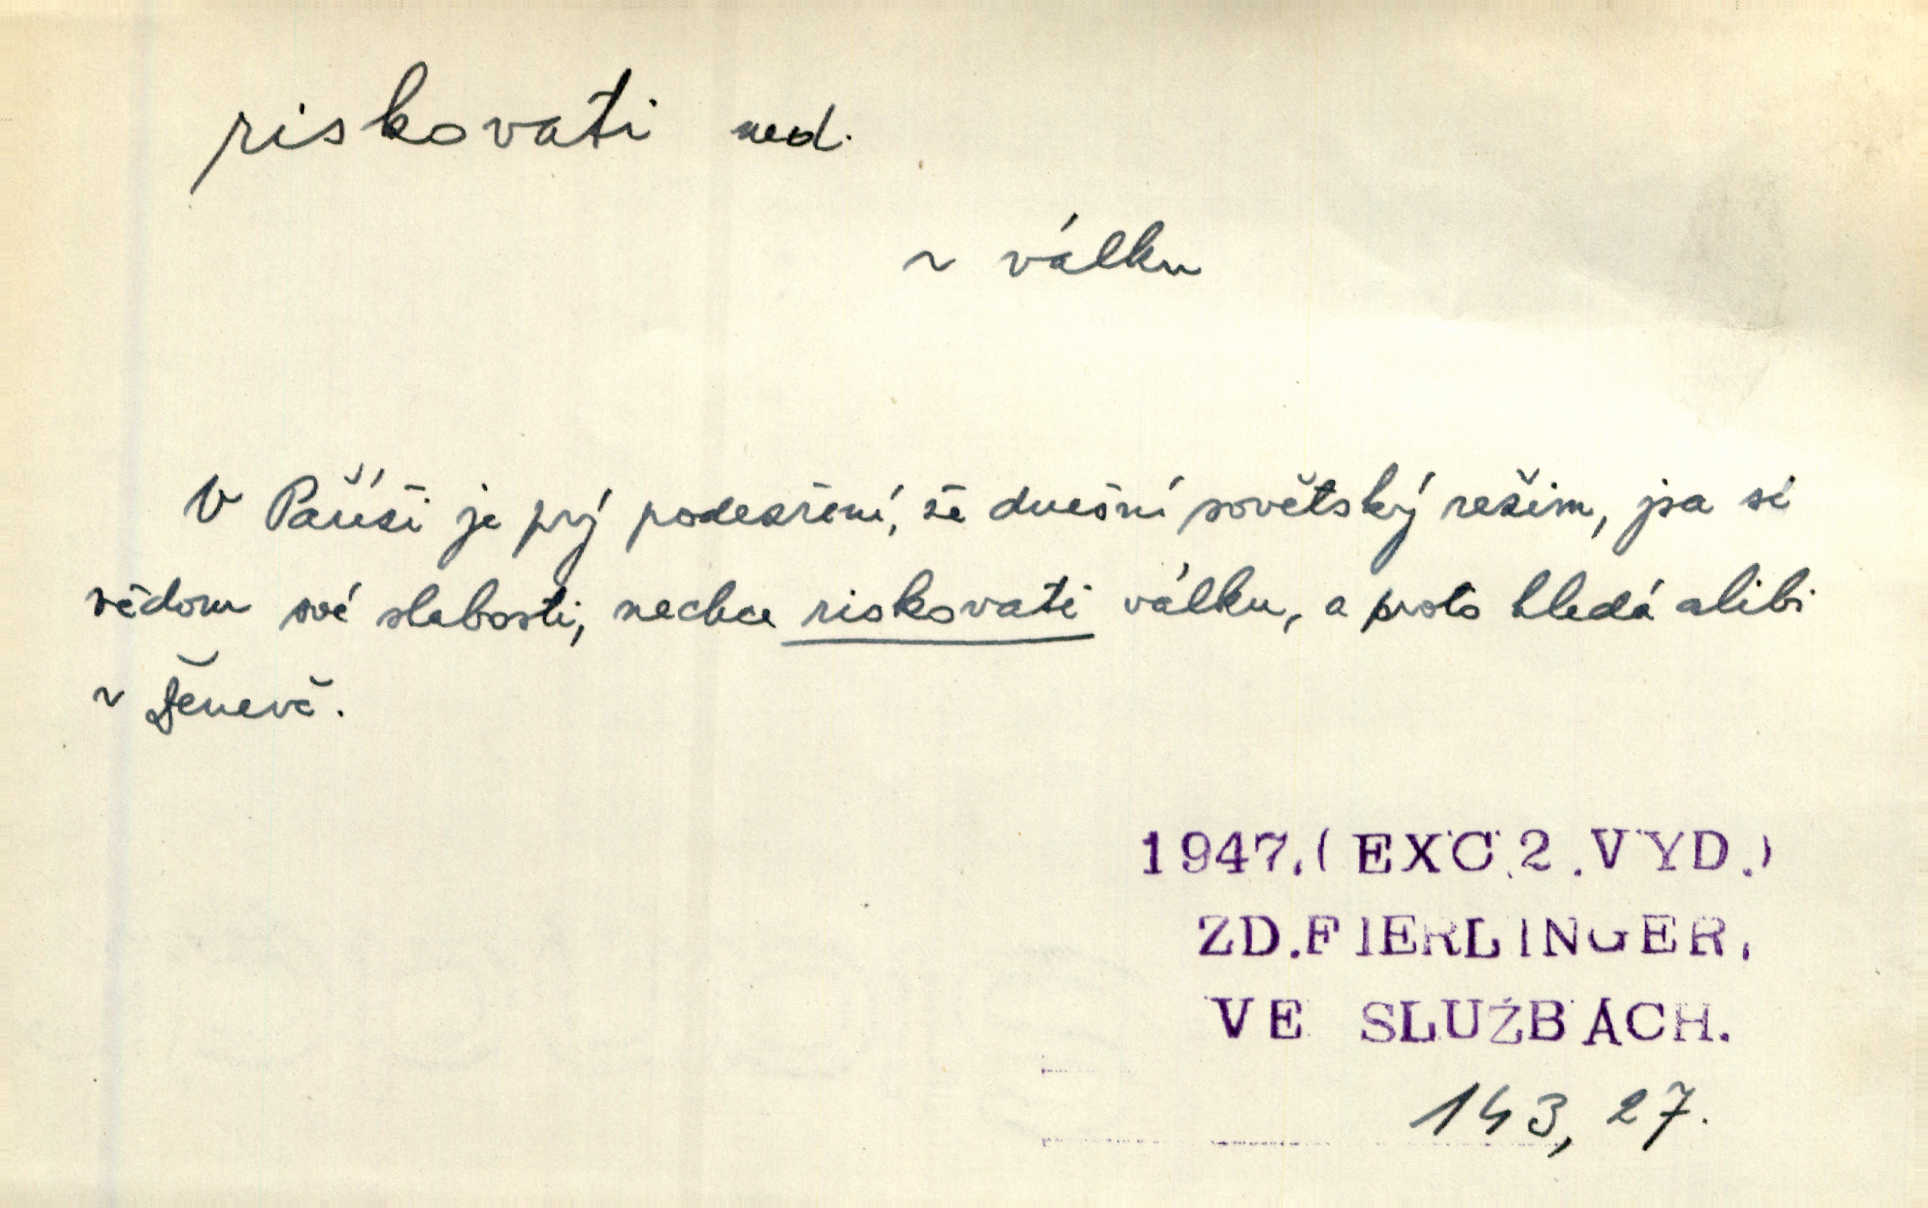 riskovati ned.
~ válku
V Paříži je prý podezření, že dnešní sovětský režim, jsa si
vědom své slabosti, nechce riskovati válku, a proto hledá alibi
v Ženevě.
1947.(EXC.2.VYD.)
ZD.FIERLINGER,
VE SLUŽBÁCH.
143, 27.